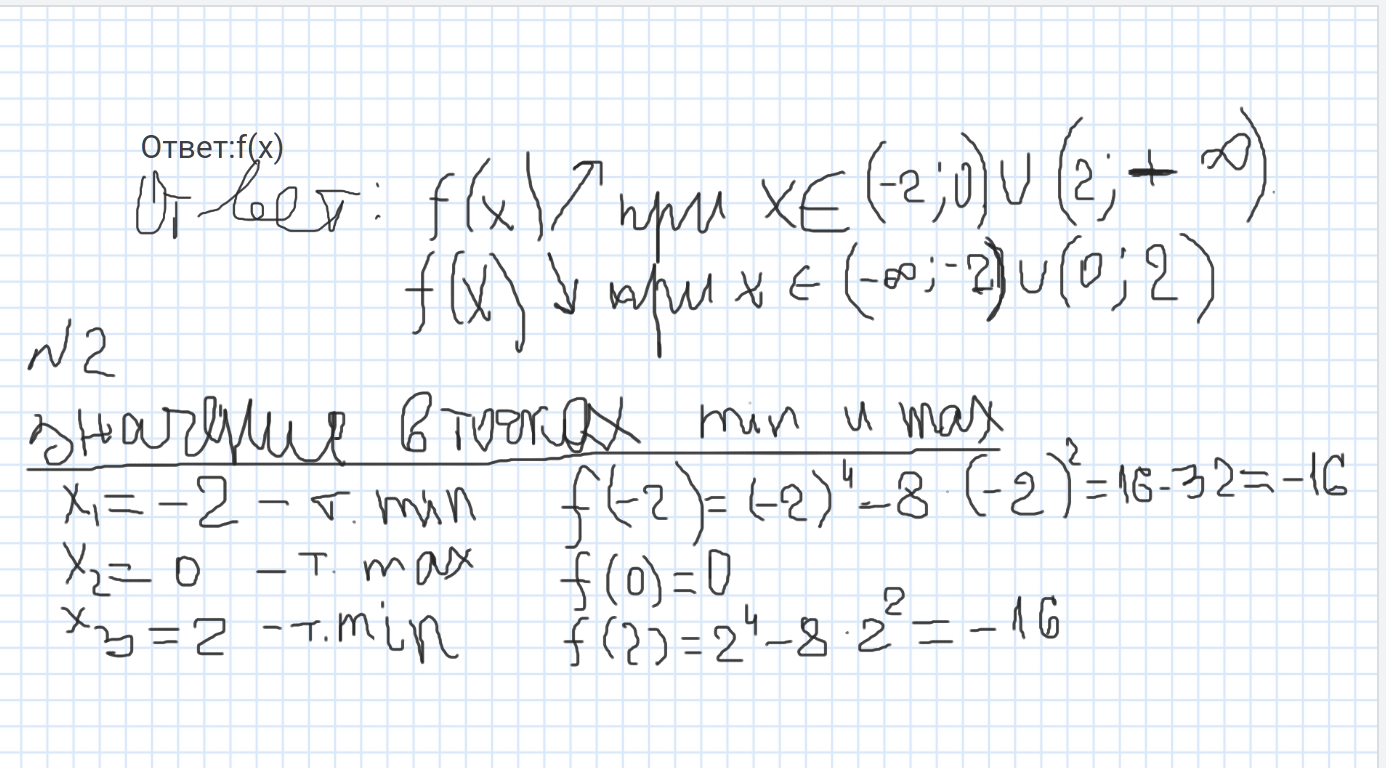 Ответ:f(x)
Ответ: f(x) ↗ при x∈ (-2;0)∪(2;+∞)
f(x) ↘ при x ∈ (-∞;-2)∪(0;2)
N2
значения в точках min и max
x₁= -2 - т. min f(-2)= (-2)⁴-8·(-2)²=16-32=-16
x₂= 0 - т. max f(0)=0
x₃=2 -т.min f(2)=2⁴-8·2²=-16